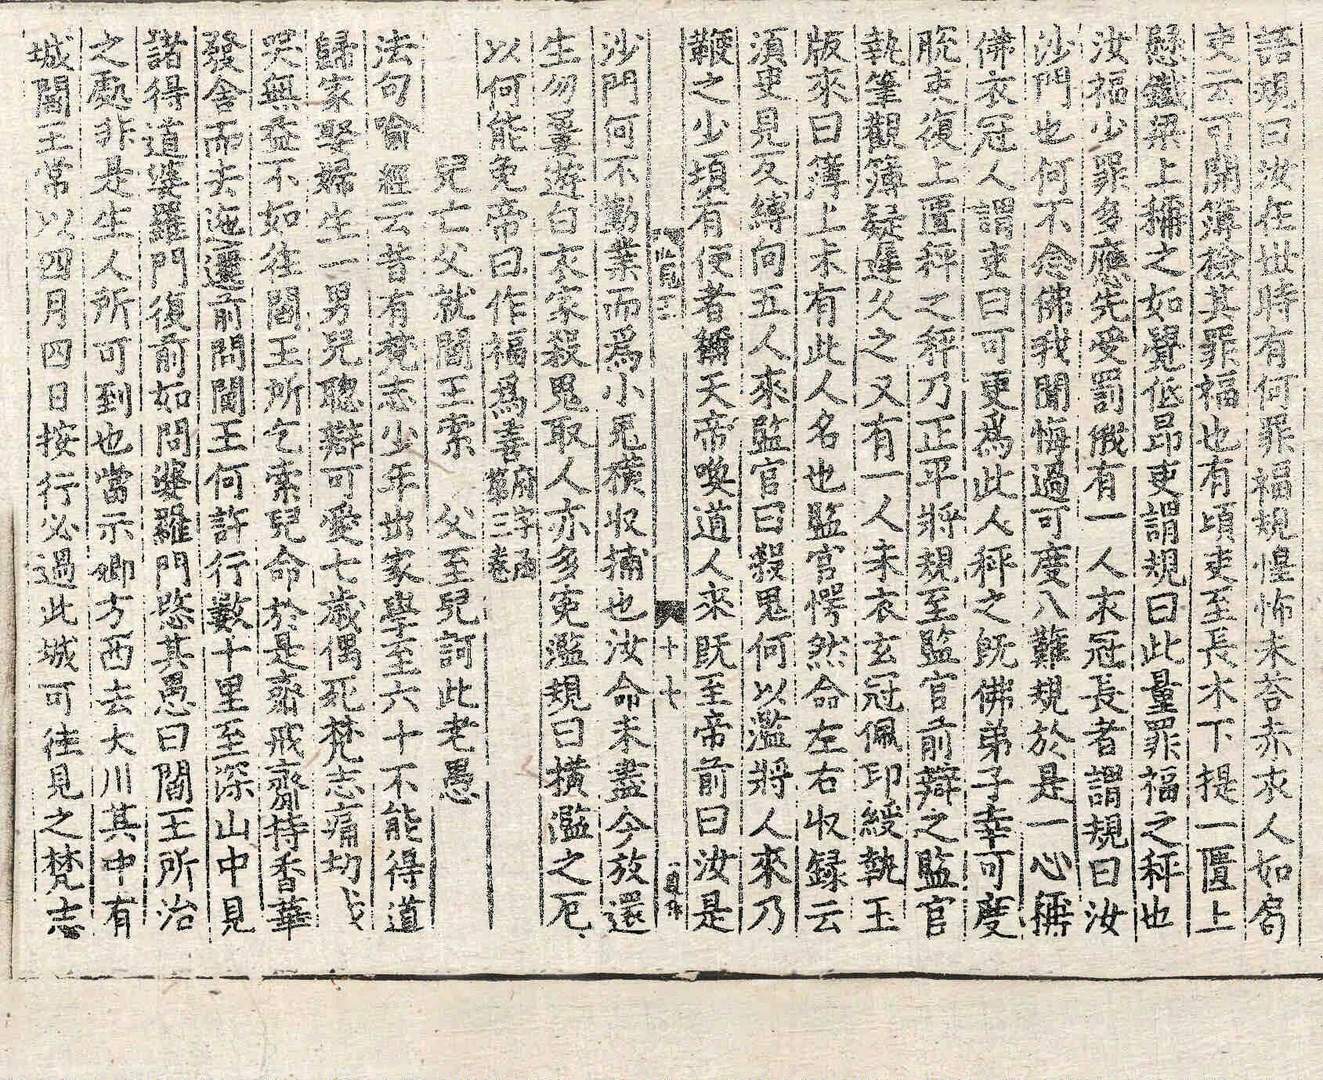 語規曰汝在世時有何罪福規惶怖未荅赤衣人如局
吏云可開簿檢其罪福也有頃吏至長木下提一匱上
懸鐵梁上稱之如覺低昂吏謂規曰此量罪福之秤也
汝福少罪多應先受罰俄有一人衣冠長者謂規曰汝
沙門也何不念佛我聞悔過可度八難規於是一心稱
佛衣冠人謂吏曰可更爲此人秤之旣佛弟子幸可度
脫吏復上匱秤之秤乃正平將規至監官前辯之監官
執筆觀簿疑遲久之又有一人朱衣玄冠佩印綬執玉
版來曰簿上未有此人名也監官愕然命左右收録云
湏吏見反縛向五人來監官曰殺鬼何以濫將人來乃
鞭之少頃有使者稱天帝喚道人來旣至帝前曰汝是
十七
沙門何不勤業而爲小鬼橫收捕也汝命未盡今放還
生勿羣遊白衣家殺鬼取人亦多寃濫規曰橫濫之厄
以何能免帝曰作福爲善府字函第三卷
兒亡父就閻王索 父至兒訶此老愚
法句喻經云昔有梵志少年出家學至六十不能得道
歸家娶婦生一男兒聰辯可愛七歲偶死梵志痛切
哭無益不如往閻王所乞索兒命於是齋戒齎持香華
發舍而去迤邐前問閻王何許行數十里至深山中見
諸得道婆羅門復前如問婆羅門愍其愚曰閻王所治
之處非是生人所可到也當示卿方西去大川其中有
城閻王常以四月四日按行必過此城可往見之梵志